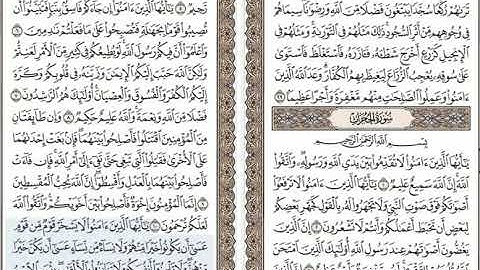 تَرَىٰهُمْ رُكَّعًا سُجَّدًا يَبْتَغُونَ فَضْلًا مِّنَ ٱللَّهِ وَرِضْوَٰنًا سِيمَاهُمْ
فِى وُجُوهِهِم مِّنْ أَثَرِ ٱلسُّجُودِ ذَٰلِكَ مَثَلُهُمْ فِى ٱلتَّوْرَىٰةِ وَمَثَلُهُمْ فِى
ٱلْإِنجِيلِ كَزَرْعٍ أَخْرَجَ شَطْـَٔهُۥ فَـَٔازَرَهُۥ فَٱسْتَغْلَظَ فَٱسْتَوَىٰ
عَلَىٰ سُوقِهِۦ يُعْجِبُ ٱلزُّرَّاعَ لِيَغِيظَ بِهِمُ ٱلْكُفَّارَ وَعَدَ ٱللَّهُ ٱلَّذِينَ
ءَامَنُوا۟ وَعَمِلُوا۟ ٱلصَّٰلِحَٰتِ مِنْهُم مَّغْفِرَةً وَأَجْرًا عَظِيمًۢا ٢٩
سُورَةُ الحُجُرَاتِ
بِسْمِ ٱللَّهِ ٱلرَّحْمَٰنِ ٱلرَّحِيمِ
يَٰٓأَيُّهَا ٱلَّذِينَ ءَامَنُوا۟ لَا تُقَدِّمُوا۟ بَيْنَ يَدَىِ ٱللَّهِ وَرَسُولِهِۦ وَٱتَّقُوا۟
ٱللَّهَ إِنَّ ٱللَّهَ سَمِيعٌ عَلِيمٌ ١ يَٰٓأَيُّهَا ٱلَّذِينَ ءَامَنُوا۟ لَا تَرْفَعُوٓا۟
أَصْوَٰتَكُمْ فَوْقَ صَوْتِ ٱلنَّبِىِّ وَلَا تَجْهَرُوا۟ لَهُۥ بِٱلْقَوْلِ كَجَهْرِ بَعْضِكُمْ
لِبَعْضٍ أَن تَحْبَطَ أَعْمَٰلُكُمْ وَأَنتُمْ لَا تَشْعُرُونَ ٢ إِنَّ ٱلَّذِينَ
يَغُضُّونَ أَصْوَٰتَهُمْ عِندَ رَسُولِ ٱللَّهِ أُو۟لَٰٓئِكَ ٱلَّذِينَ ٱمْتَحَنَ
رَّحِيمٌ ٥ يَٰٓأَيُّهَا ٱلَّذِينَ ءَامَنُوٓا۟ إِن جَآءَكُمْ فَاسِقٌۢ بِنَبَإٍ فَتَبَيَّنُوٓا۟ أَن
تُصِيبُوا۟ قَوْمًۢا بِجَهَٰلَةٍ فَتُصْبِحُوا۟ عَلَىٰ مَا فَعَلْتُمْ نَٰدِمِينَ ٦
وَٱعْلَمُوٓا۟ أَنَّ فِيكُمْ رَسُولَ ٱللَّهِ لَوْ يُطِيعُكُمْ فِى كَثِيرٍ مِّنَ ٱلْأَمْرِ لَعَنِتُّمْ
وَلَٰكِنَّ ٱللَّهَ حَبَّبَ إِلَيْكُمُ ٱلْإِيمَٰنَ وَزَيَّنَهُۥ فِى قُلُوبِكُمْ وَكَرَّهَ
إِلَيْكُمُ ٱلْكُفْرَ وَٱلْفُسُوقَ وَٱلْعِصْيَانَ أُو۟لَٰٓئِكَ هُمُ ٱلرَّٰشِدُونَ ٧
فَضْلًا مِّنَ ٱللَّهِ وَنِعْمَةً وَٱللَّهُ عَلِيمٌ حَكِيمٌ ٨ وَإِن طَآئِفَتَانِ
مِنَ ٱلْمُؤْمِنِينَ ٱقْتَتَلُوا۟ فَأَصْلِحُوا۟ بَيْنَهُمَا فَإِنۢ بَغَتْ إِحْدَىٰهُمَا
عَلَى ٱلْأُخْرَىٰ فَقَٰتِلُوا۟ ٱلَّتِى تَبْغِى حَتَّىٰ تَفِىٓءَ إِلَىٰٓ أَمْرِ ٱللَّهِ فَإِن فَآءَتْ
فَأَصْلِحُوا۟ بَيْنَهُمَا بِٱلْعَدْلِ وَأَقْسِطُوٓا۟ إِنَّ ٱللَّهَ يُحِبُّ ٱلْمُقْسِطِينَ
٩ إِنَّمَا ٱلْمُؤْمِنُونَ إِخْوَةٌ فَأَصْلِحُوا۟ بَيْنَ أَخَوَيْكُمْ وَٱتَّقُوا۟ ٱللَّهَ
لَعَلَّكُمْ تُرْحَمُونَ ١٠ يَٰٓأَيُّهَا ٱلَّذِينَ ءَامَنُوا۟ لَا يَسْخَرْ قَوْمٌ مِّن قَوْمٍ
عَسَىٰٓ أَن يَكُونُوا۟ خَيْرًا مِّنْهُمْ وَلَا نِسَآءٌ مِّن نِّسَآءٍ عَسَىٰٓ أَن يَكُنَّ خَيْرًا